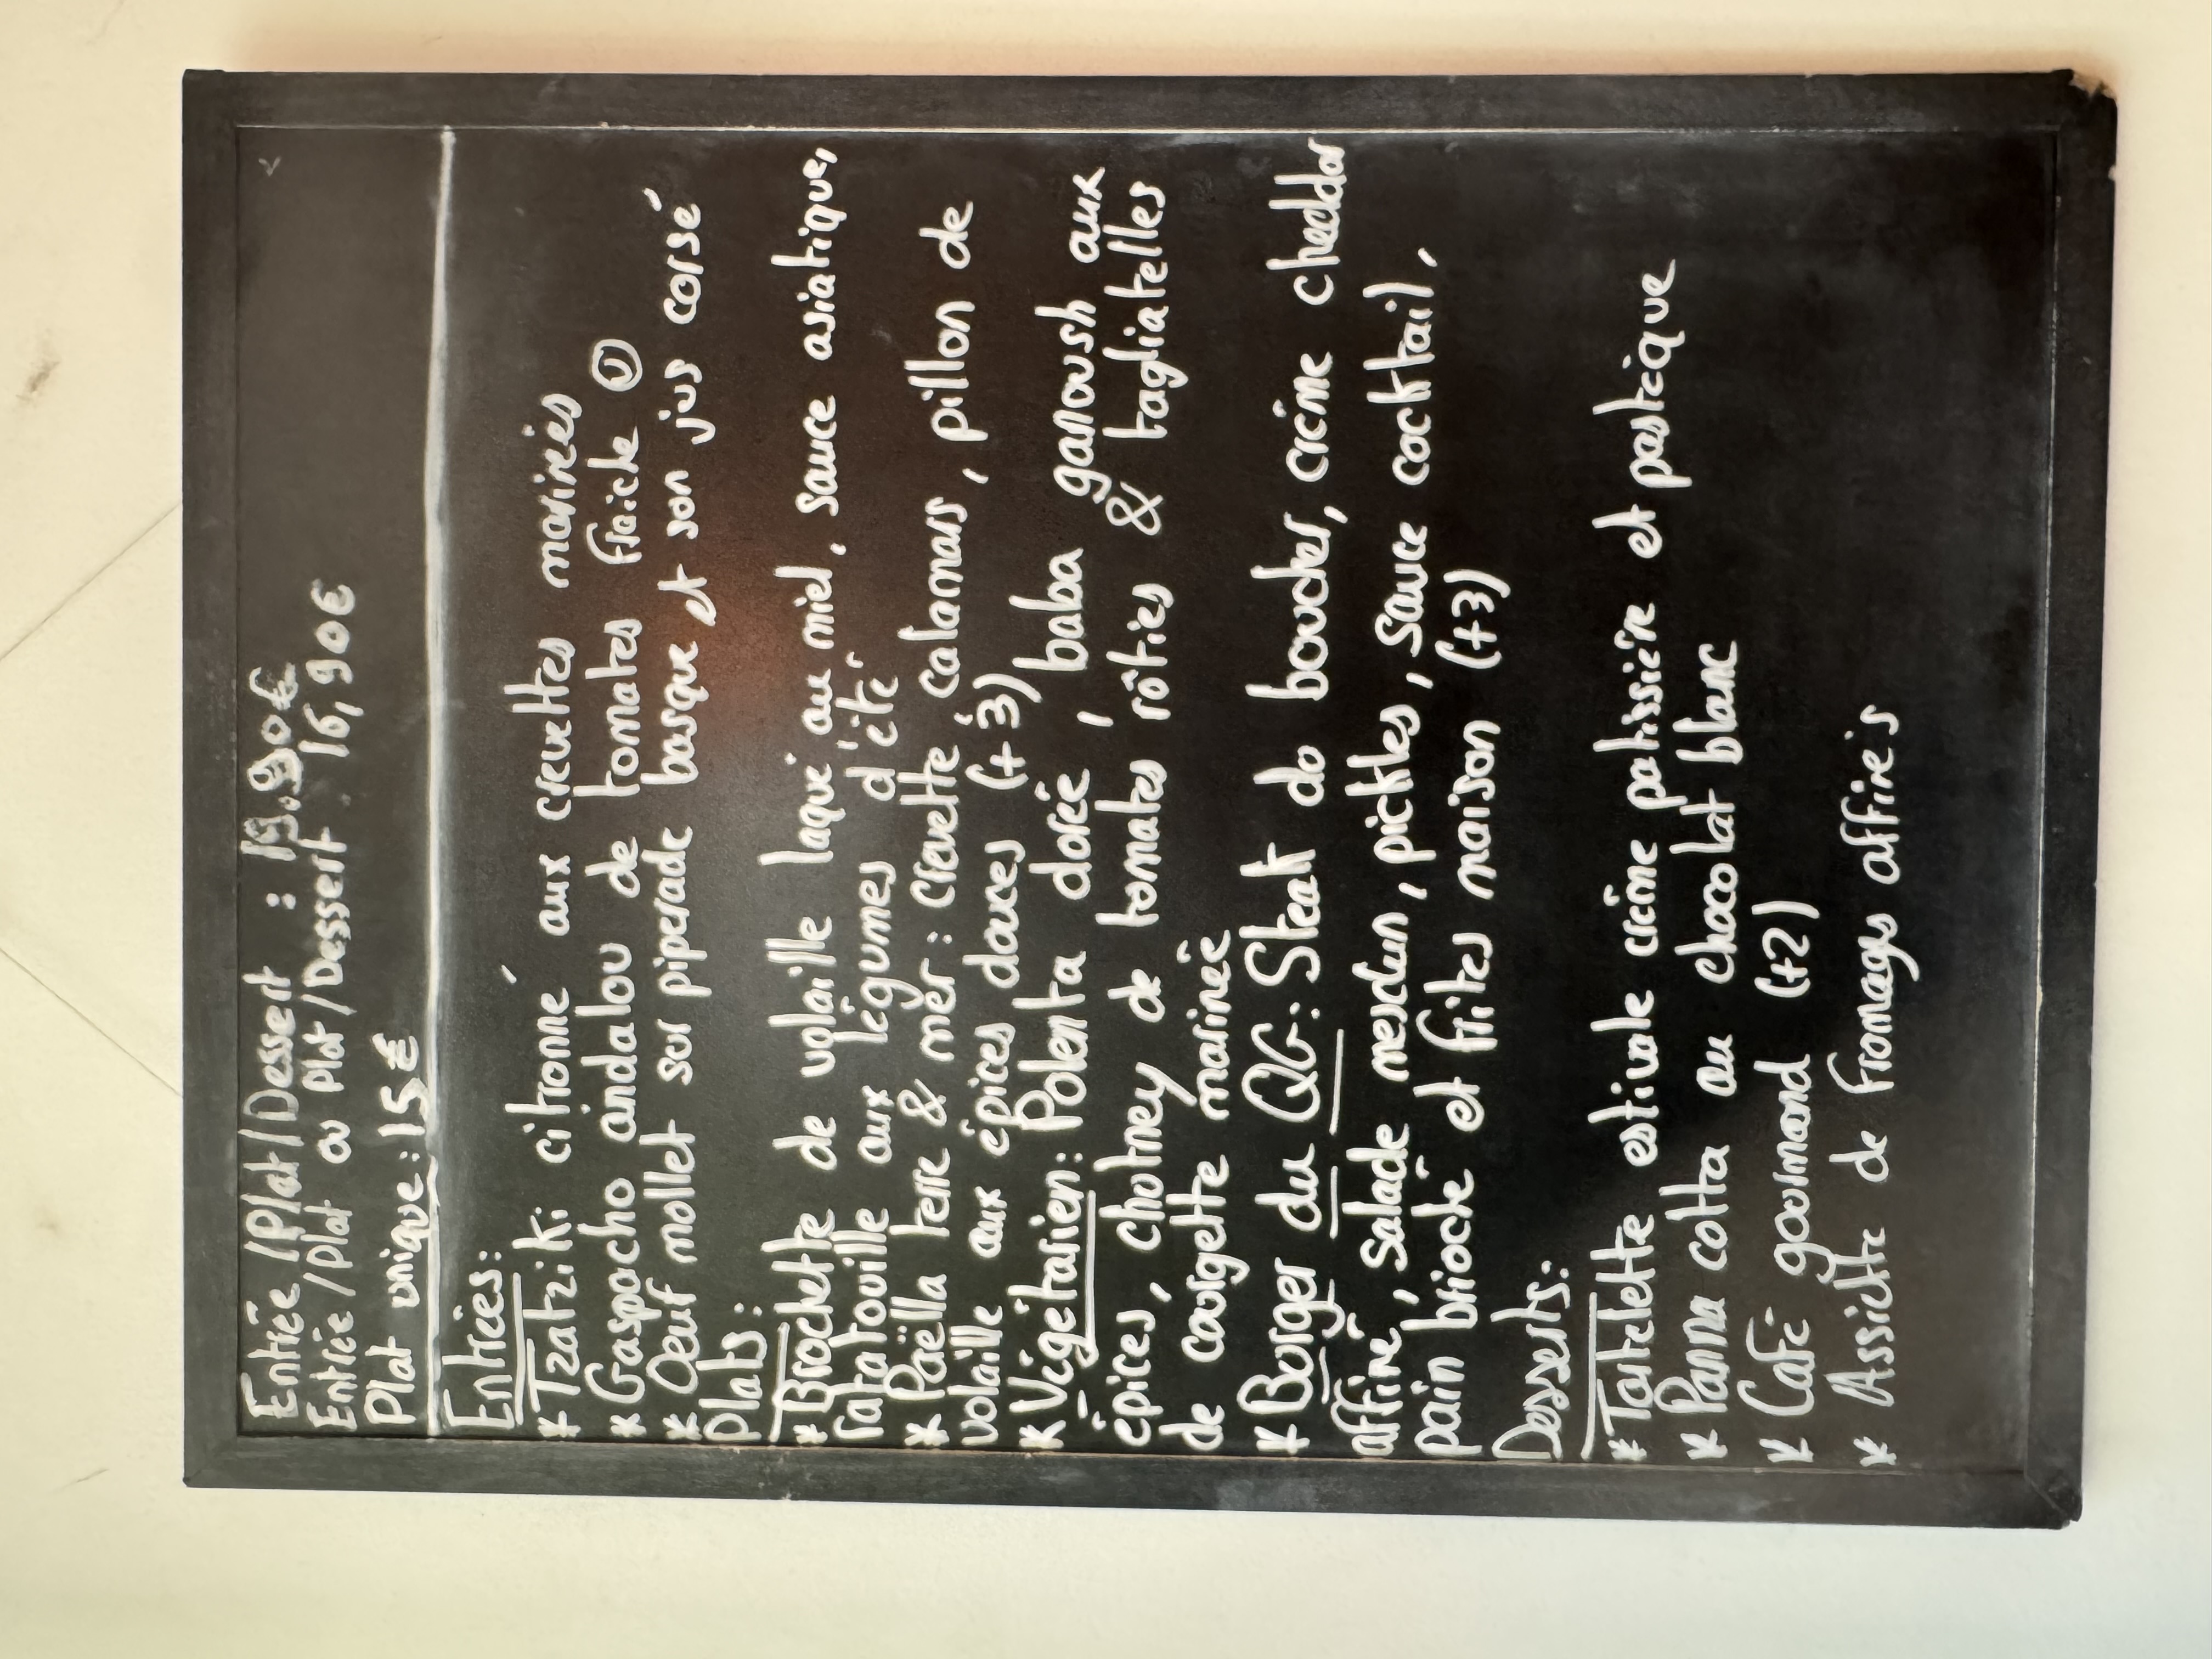 Entrée /Plat/Dessert : 19.90€
Entrée /plat ou Plat/Dessert : 16,90€
Plat unique: 15€
Entrées:
* Tzatziki citronné aux crevettes marinées
* Gaspacho andalou de tomates fraiche Ⓥ
* Oeuf mollet sur piperade basque et son jus corsé
Plats:
* Brochette de volaille laqué au miel, sauce asiatique,
ratatouille aux légumes d'été
* Paëlla terre & mer: crevette, calamars, pillon de
volaille aux épices douces (+3)
* Végétarien: Polenta dorée, baba ganoush aux
épices, chutney de tomates rôties & tagliatelles
de courgette marinée
* Burger du QG: Steak do boucher, crème cheddar
affiné, salade mesclun, pickles, sauce cocktail,
pain brioché et frites maison (+3)
Desserts:
* Tartelette estivale crème patissière et pastèque
* Panna cotta au chocolat blanc
* Café gourmand (+2)
* Assiette de fromages affinés